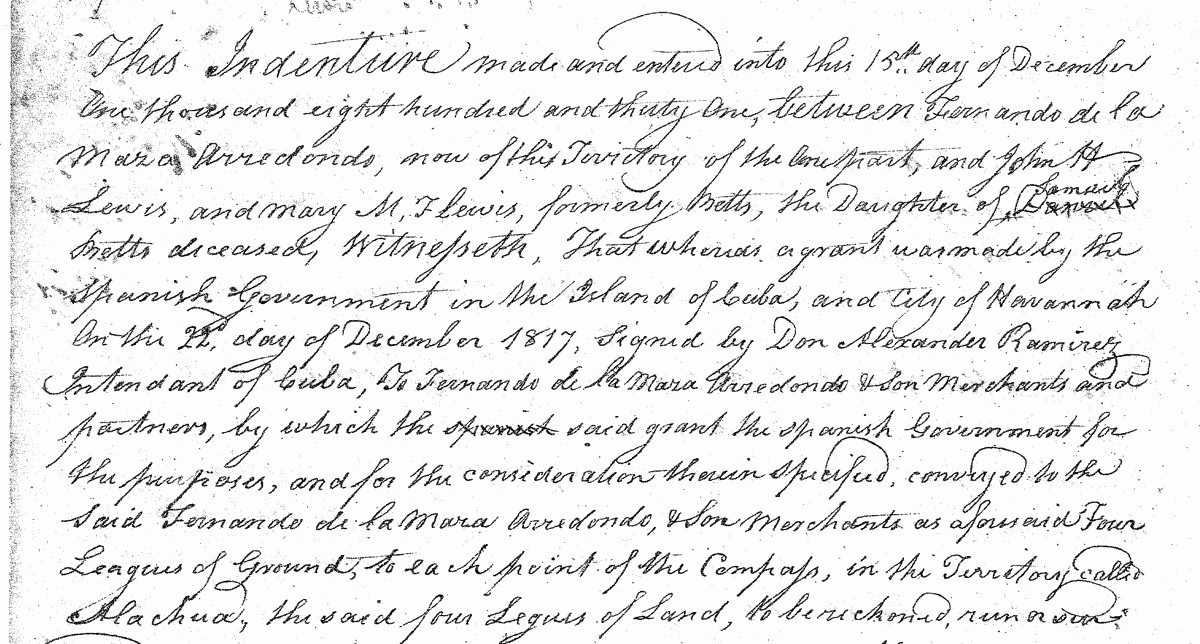 This Indenture made and entered into this 15th day of December
One thousand eight hundred and thirty One, between Fernando de la
Maza Arredondo, now of this Territory of the One part, and John H
Lewis, and Mary M, F Lewis, formerly Betts, the Daughter of Samuel
Betts deceased, Witnesseth, That whereas a grant was made by the
Spanish Government in the Island of Cuba, and City of Havannah
On the 22d, day of December 1817, Signed by Don Alexander Ramirez
Intendant of Cuba, To Fernando de la Maza Arredondo & Son Merchants and
partners, by which the spanish said grant the spanish Government for
the purposes, and for the consideration therein specified, conveyed to the
Said Fernando de la Maza Arredondo, & Son Merchants as aforesaid Four
Leagues of Ground, to each point of the Compass, in the Territory called
Alachua, the said four Legues of Land, to be reckoned, run or